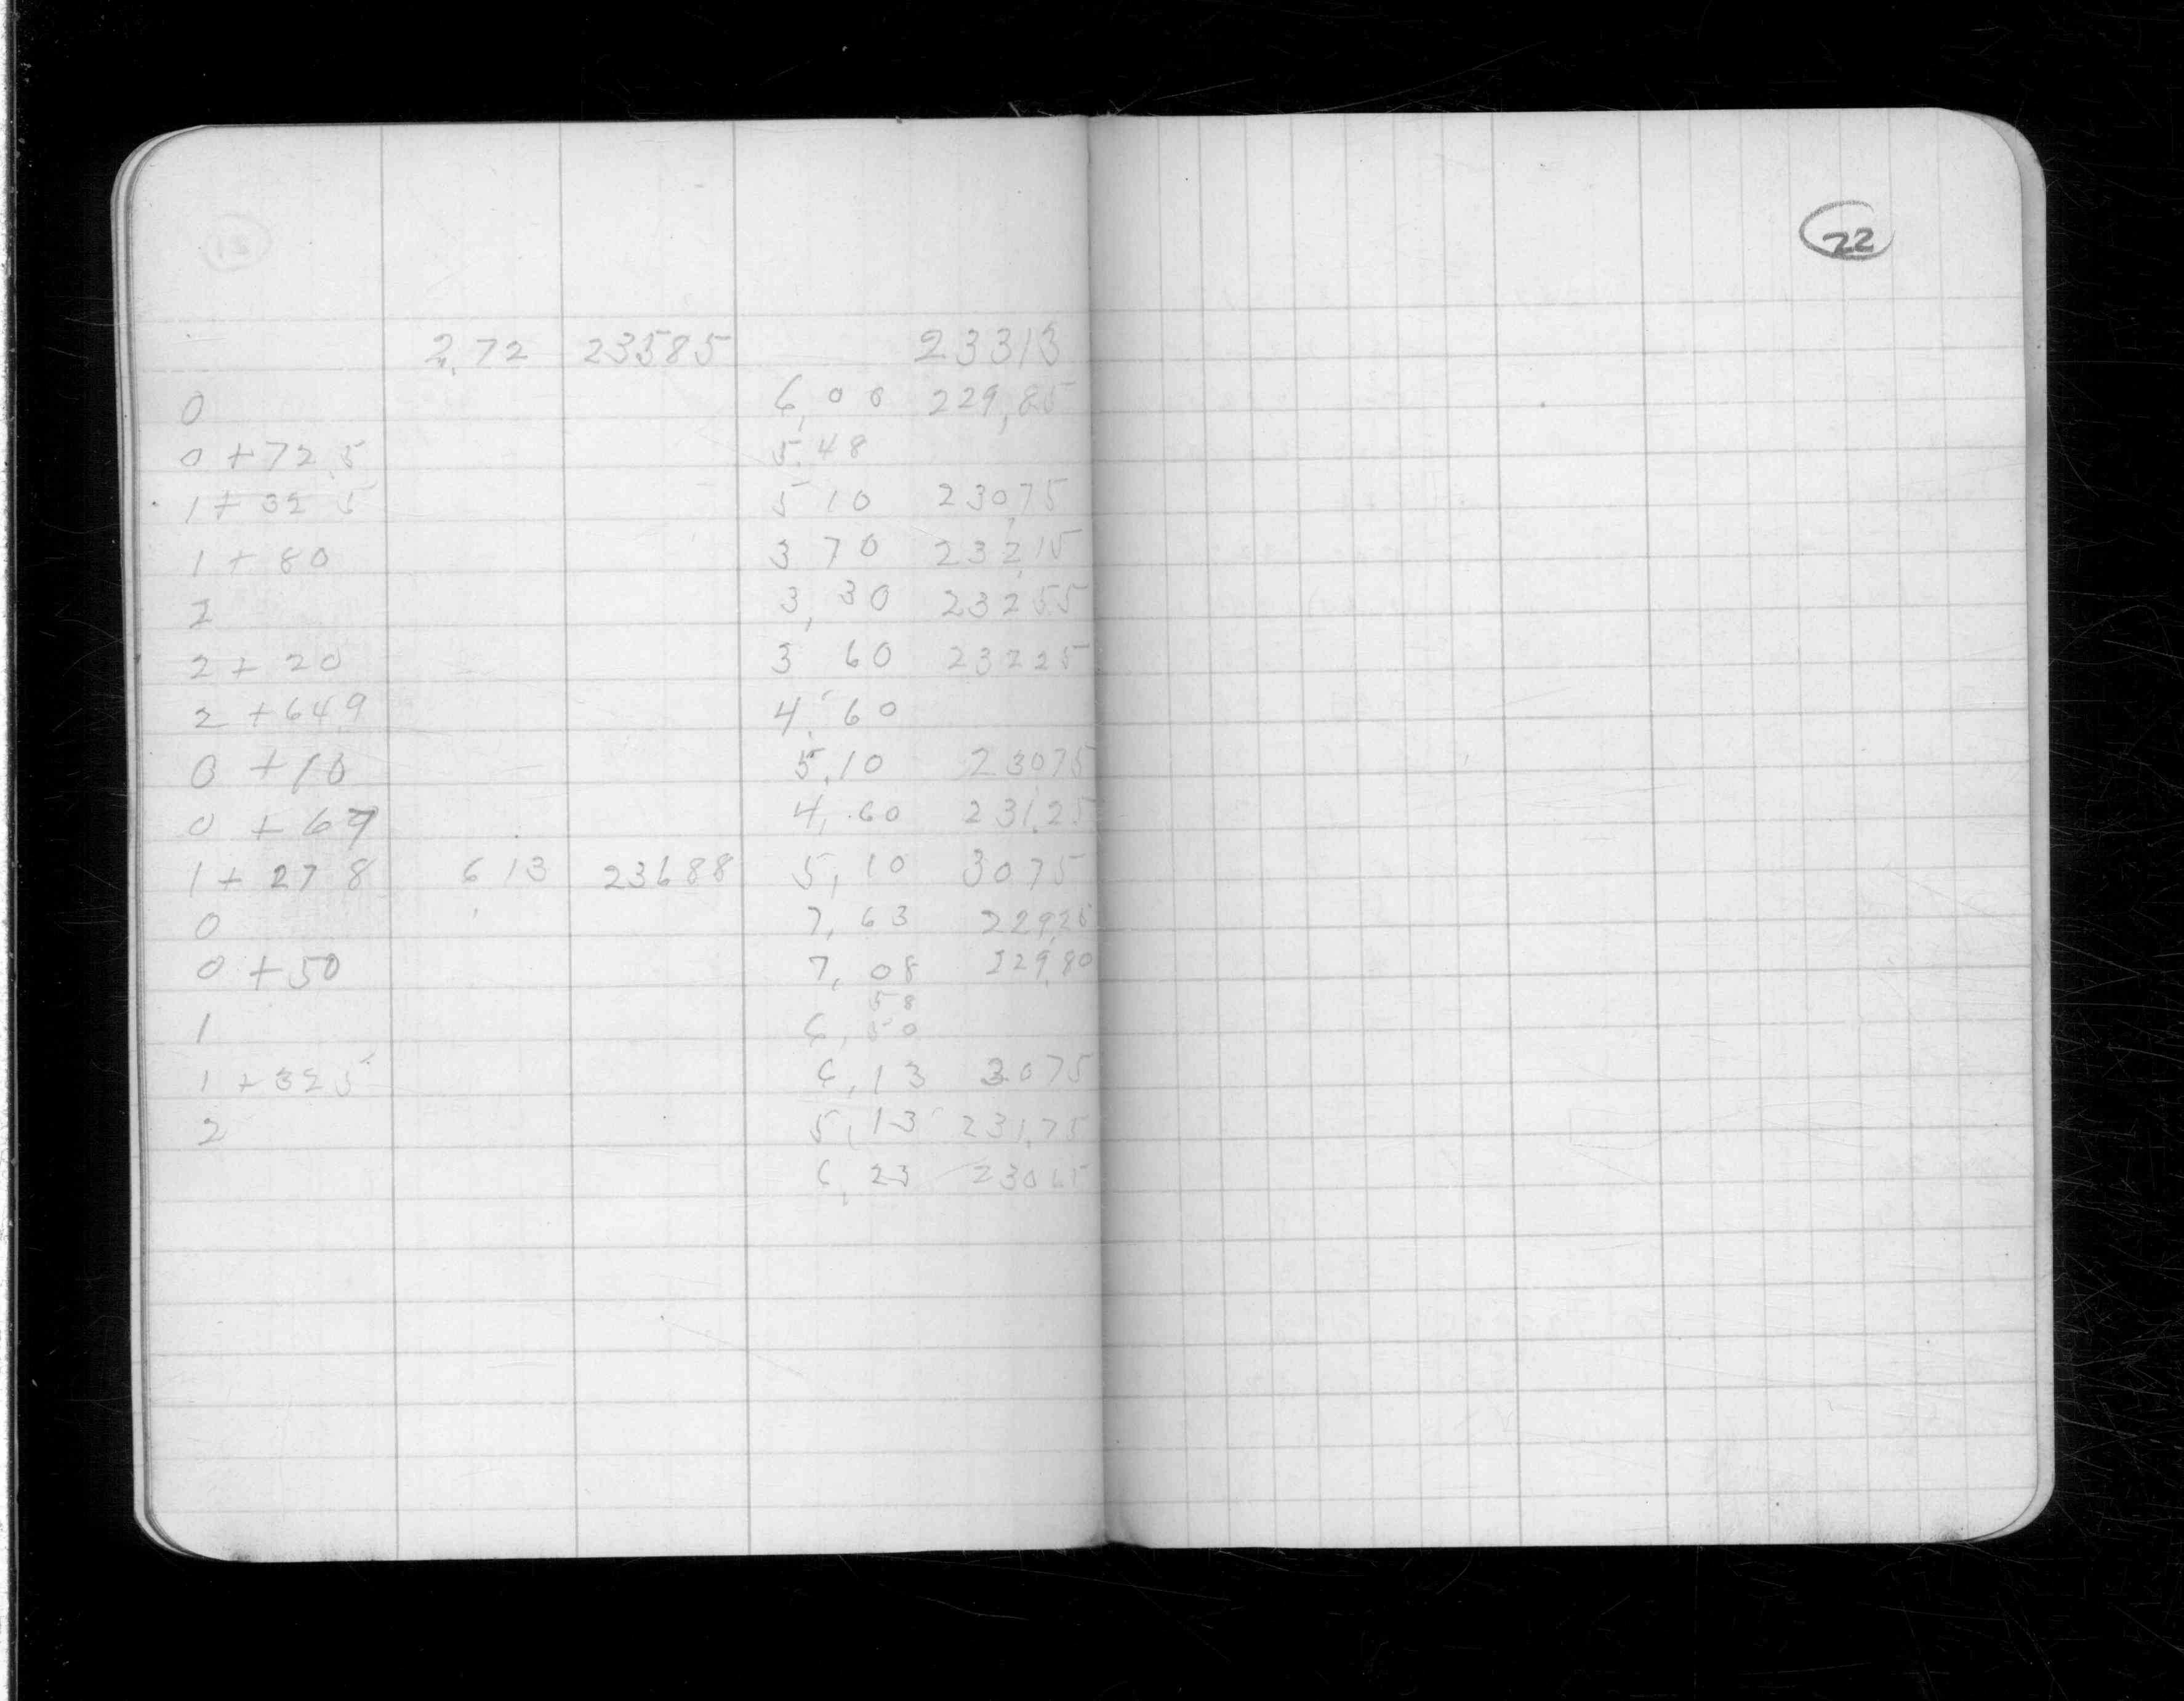 22
2,72 23585 23313
0 6,00 229,85
0 + 72.5 5.48
1 + 32 5 5 10 230,75
1 + 80 3 70 232,15
2 3,30 23255
2 + 20 3 60 23225
2 + 64.9 4,60
0 + 10 5,10 23075
0 + 67 4,60 231,25
1 + 27 8 6 13 23688 5,10 3075
0 7,63 229,25
0 + 50 7,08 229,80
58
1 6,50
1 + 32 5 6,13 3075
2 5,13 231,75
6,23 23065